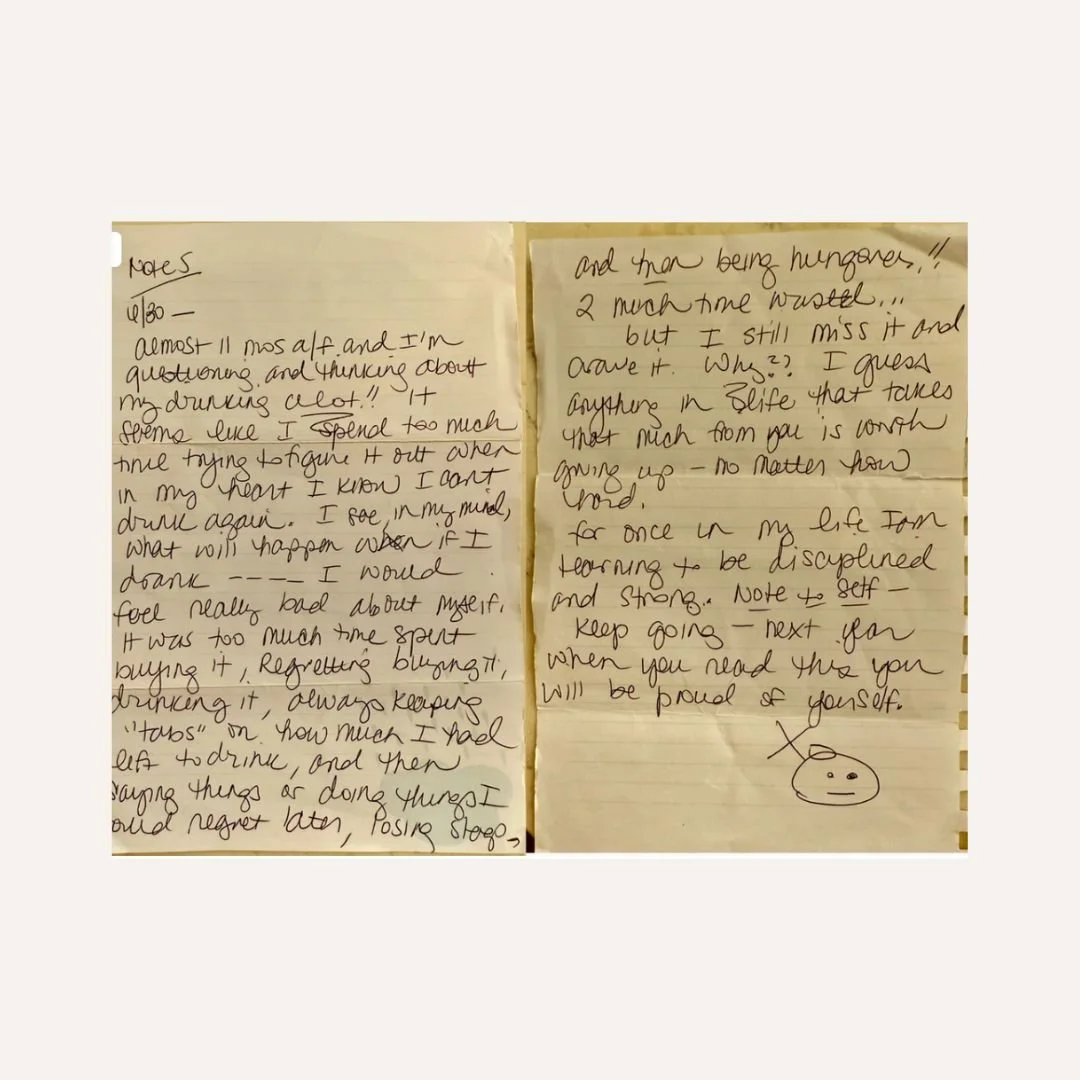 Notes
4/30 —
almost 11 mos a/f. and I'm
questioning and thinking about
my drinking alot!! It
seems like I spend too much
time trying to figure it out when
in my heart I know I can't
drink again. I see, in my mind,
what will happen when if I
drank ---- I would
feel really bad about myself.
It was too much time spent
buying it, Regretting buying it,
drinking it, always keeping
"tabs" on how much I had
left to drink, and then
saying things or doing things I
would regret later, losing sleep,
and then being hungover!!
2 much time wasted...
but I still miss it and
crave it. Why?? I guess
anything in life that takes
that much from you is worth
giving up — no matter how
hard.
for once in my life I am
learning to be disciplined
and strong. Note to self —
keep going — next year
when you read this you
will be proud of yourself.
X